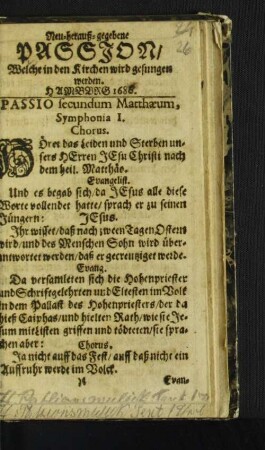 Neu-herauß-gegebene
PASSION/
Welche in den Kirchen wird gesungen
werden.
HAMBURG 1686.
PASSIO secundum Matthæum,
Symphonia I.
Chorus.
HÖret das Leiden und Sterben un-
sers HErren JEsu Christi nach
dem heil. Matthäo.
Evangelist.
Und es begab sich/ da JEsus alle diese
Worte vollendet hatte/ sprach er zu seinen
Jüngern: JEsus.
Ihr wisset/ daß nach zween Tagen Ostern
wird/ und des Menschen Sohn wird über-
antwortet werden/ daß er gecreutziget werde.
Evang.
Da versamleten sich die Hohenpriester
und Schrifftgelehrten und Eltesten im Volck
in dem Pallast des Hohenpriesters/ der da
hieß Caiphas/ und hielten Rath/ wie sie Je-
sum mit Listen griffen und tödteten/ sie spra-
chen aber: Chorus.
Ja nicht auff das Fest/ auff daß nicht ein
Auffruhr werde im Volck.
Evan-
26